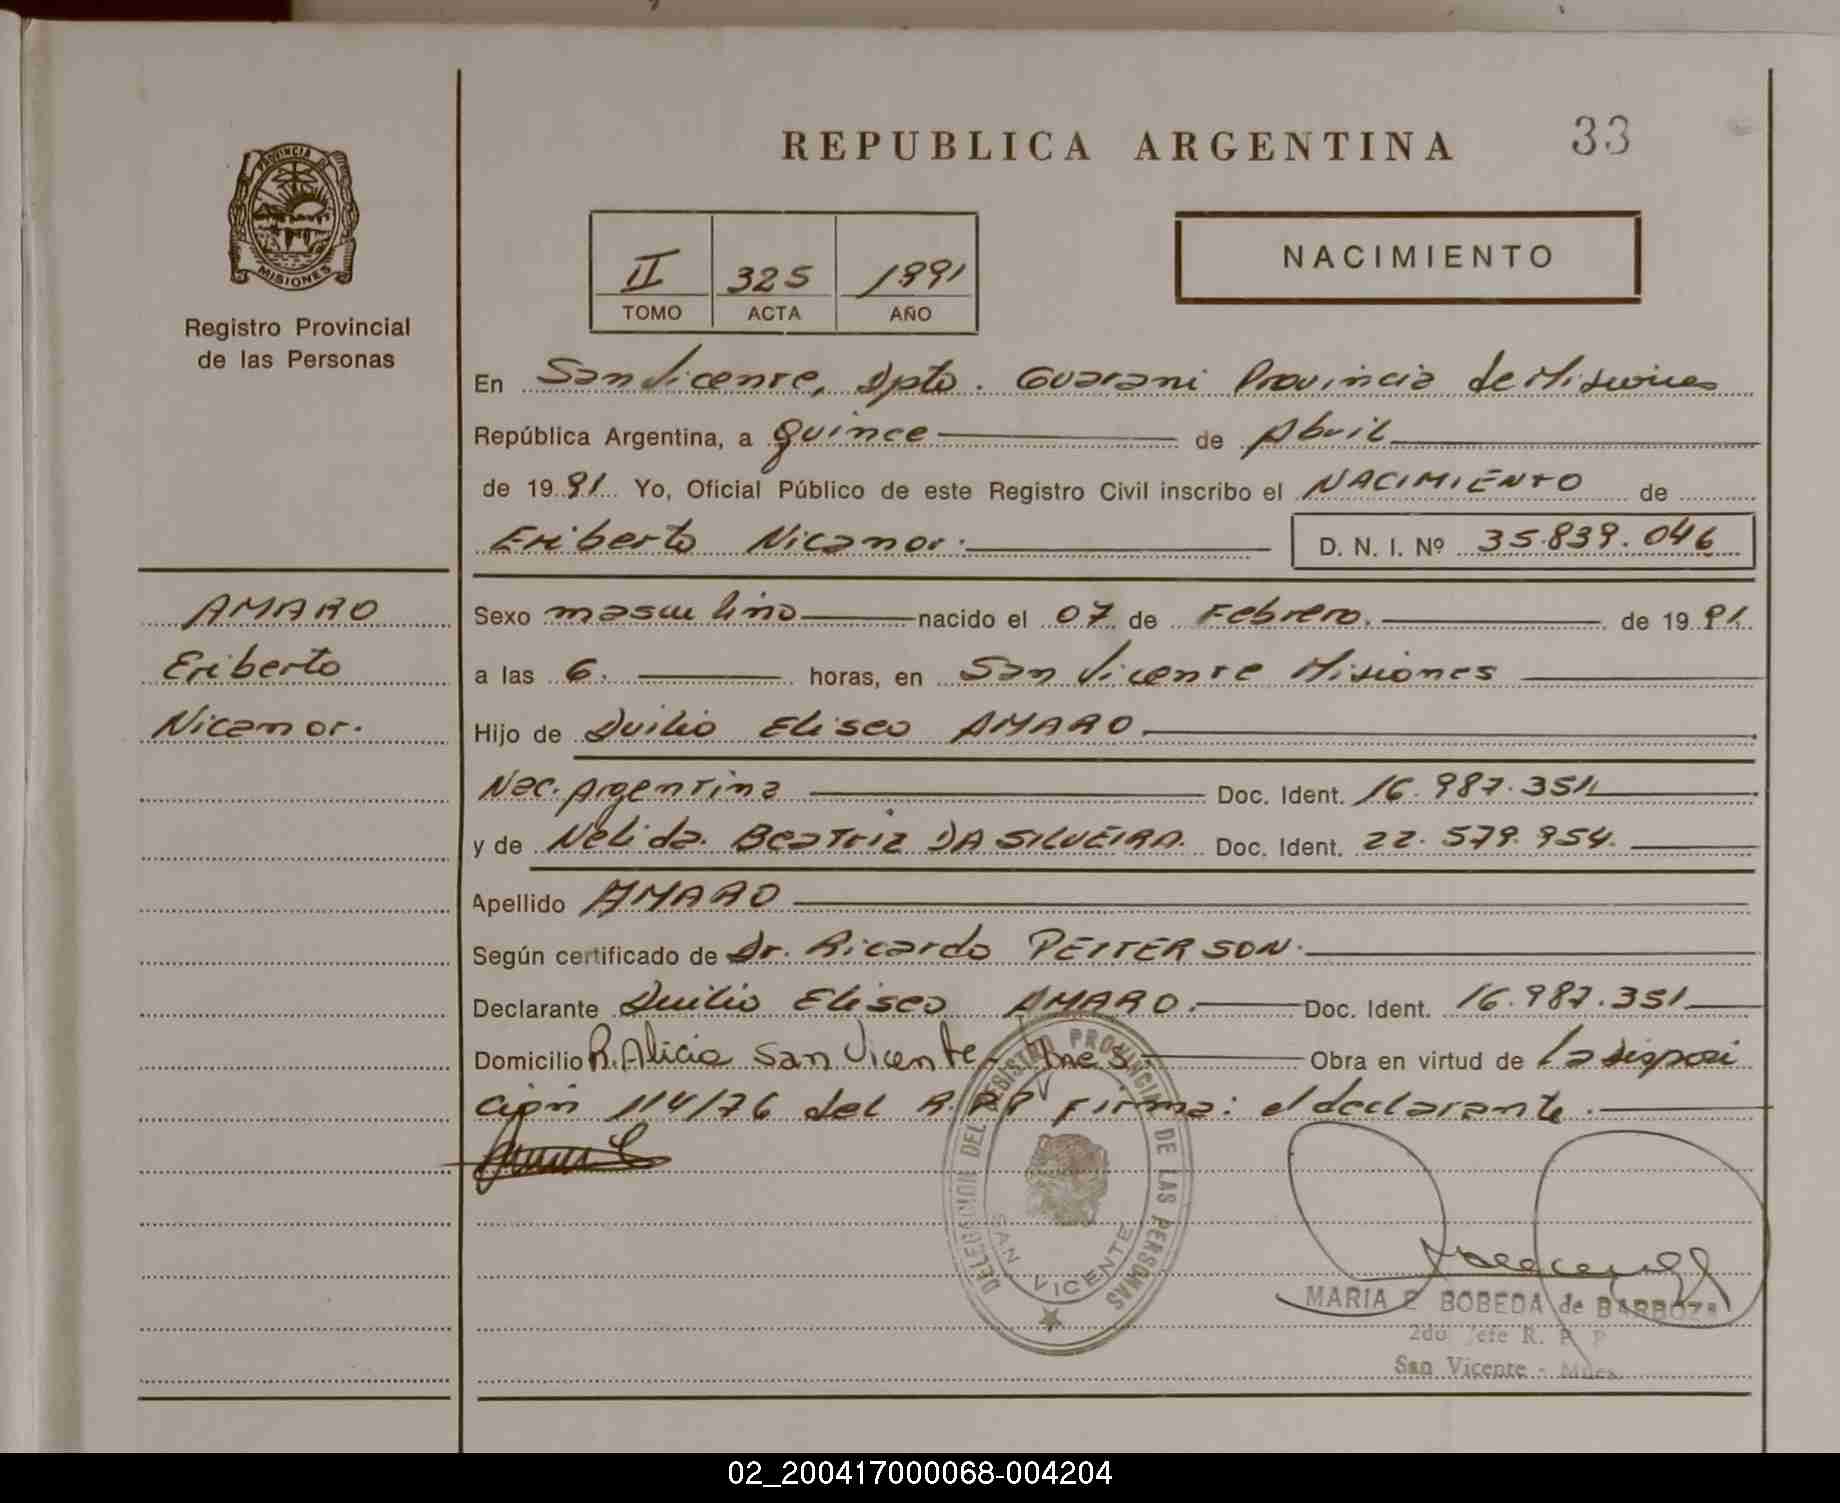 REPUBLICA ARGENTINA
33
PROVINCIA DE
MISIONES
Registro Provincial
de las Personas
II 325 1991
TOMO ACTA AÑO
NACIMIENTO
En San Vicente, Dpto. Guarani Provincia de Misiones
República Argentina, a quince de Abril
de 1991 Yo, Oficial Público de este Registro Civil inscribo el NACIMIENTO de
Eriberto Nicanor. D. N. I. Nº 35.839.046
AMARO
Eriberto
Nicanor.
Sexo masculino nacido el 07 de Febrero. de 1991.
a las 6. horas, en San Vicente Misiones
Hijo de Duilio Eliseo AMARO
Nac. Argentina Doc. Ident. 16.987.351
y de Nelida Beatriz DA SILVEIRA. Doc. Ident. 22.579.954.
Apellido AMARO
Según certificado de Dr. Ricardo PEITERSON.
Declarante Duilio Eliseo AMARO. Doc. Ident. 16.987.351
Domicilio R. Alicia San Vicente - Mnes. Obra en virtud de la disposi
ción 114/76 del R.P.P. Firma: el declarante.
DELEGACION DEL REGISTRO PROVINCIAL DE LAS PERSONAS
SAN VICENTE
MARIA E BOBEDA de BARBOZA
2do Jefe R. P. P
San Vicente - Mnes.
02_200417000068-004204